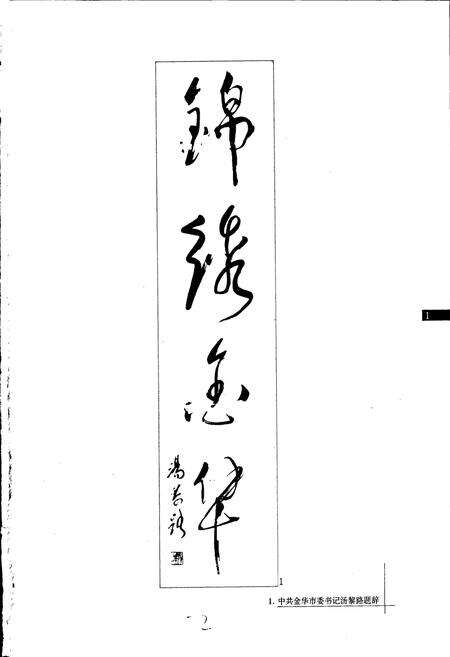 錦
绣
金
华
湯黎路
1
1
1. 中共金华市委书记汤黎路题辞
72